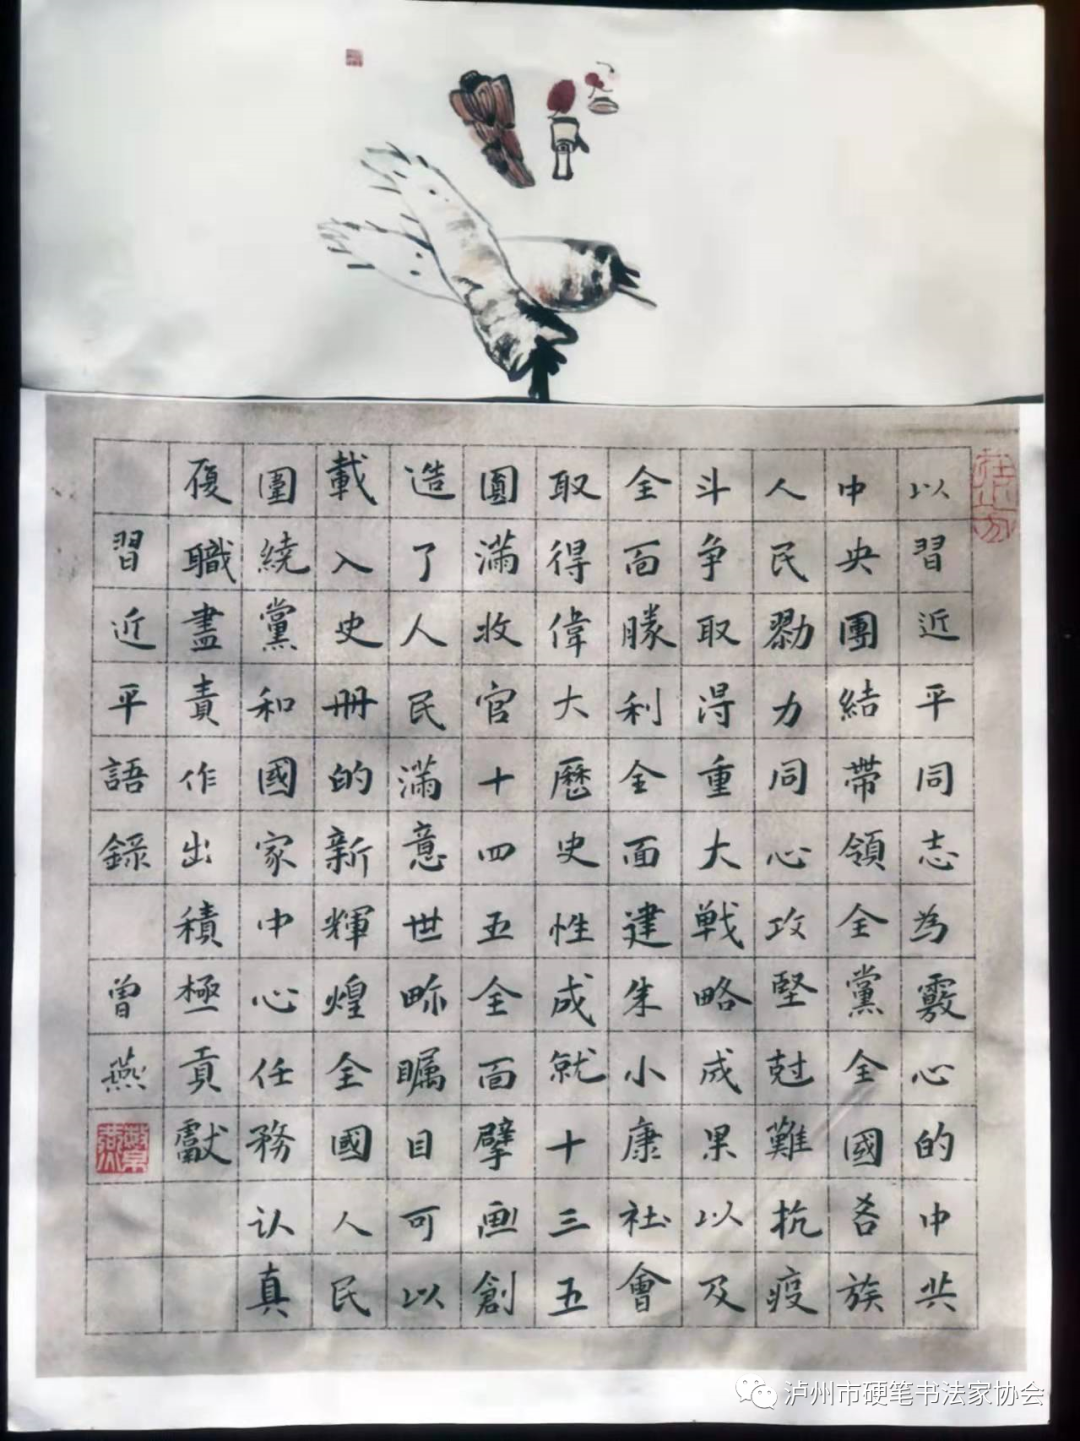 以習近平同志為覈心的中共
中央團結帶領全黨全國各族
人民勠力同心攻堅尅難抗疫
斗争取得重大戦略成果以及
全面勝利全面建朱小康社會
取得偉大歷史性成就十三五
圓滿收官十四五全面擘画創
造了人民滿意世眎矚目可以
載入史册的新輝煌全國人民
圍繞黨和國家中心任務认真
履職盡責作出積極貢獻
習近平語錄 曾燕
泸州市硬笔书法家协会